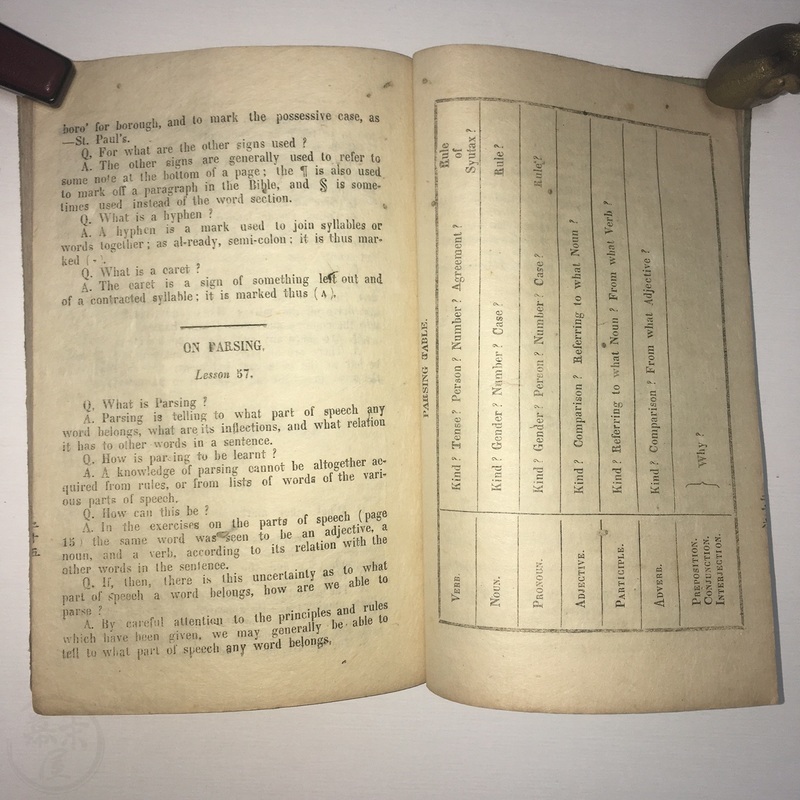 boro' for borough, and to mark the possessive case, as
—St. Paul's.
Q. For what are the other signs used ?
A. The other signs are generally used to refer to
some note at the bottom of a page; the ¶ is also used
to mark off a paragraph in the Bible, and § is some-
times used instead of the word section.
Q. What is a hyphen ?
A. A hyphen is a mark used to join syllables or
words together; as al-ready, semi-colon; it is thus mar-
ked ( - .
Q. What is a caret ?
A. The caret is a sign of something left out and
of a contracted syllable; it is marked thus (ʌ).
ON PARSING.
Lesson 57.
Q. What is Parsing ?
A. Parsing is telling to what part of speech any
word belongs, what are its inflections, and what relation
it has to other words in a sentence.
Q. How is parsing to be learnt ?
A. A knowledge of parsing cannot be altogether ac-
quired from rules, or from lists of words of the vari-
ous parts of speech.
Q. How can this be ?
A. In the exercises on the parts of speech (page
15) the same word was seen to be an adjective, a
noun, and a verb, according to its relation with the
other words in the sentence.
Q. If, then, there is this uncertainty as to what
part of speech a word belongs, how are we able to
parse ?
A. By careful attention to the principles and rules
which have been given, we may generally be able to
tell to what part of speech any word belongs,
PARSING TABLE.
VERB. Kind ? Tense ? Person ? Number ? Agreement ? Rule of Syntax ?
NOUN. Kind ? Gender ? Number ? Case ? Rule ?
PRONOUN. Kind ? Gender ? Person ? Number ? Case ? Rule ?
ADJECTIVE. Kind ? Comparison ? Referring to what Noun ?
PARTICIPLE. Kind ? Referring to what Noun ? From what Verb ?
ADVERB. Kind ? Comparison ? From what Adjective ?
PREPOSITION.
CONJUNCTION. } Why ?
INTERJECTION.